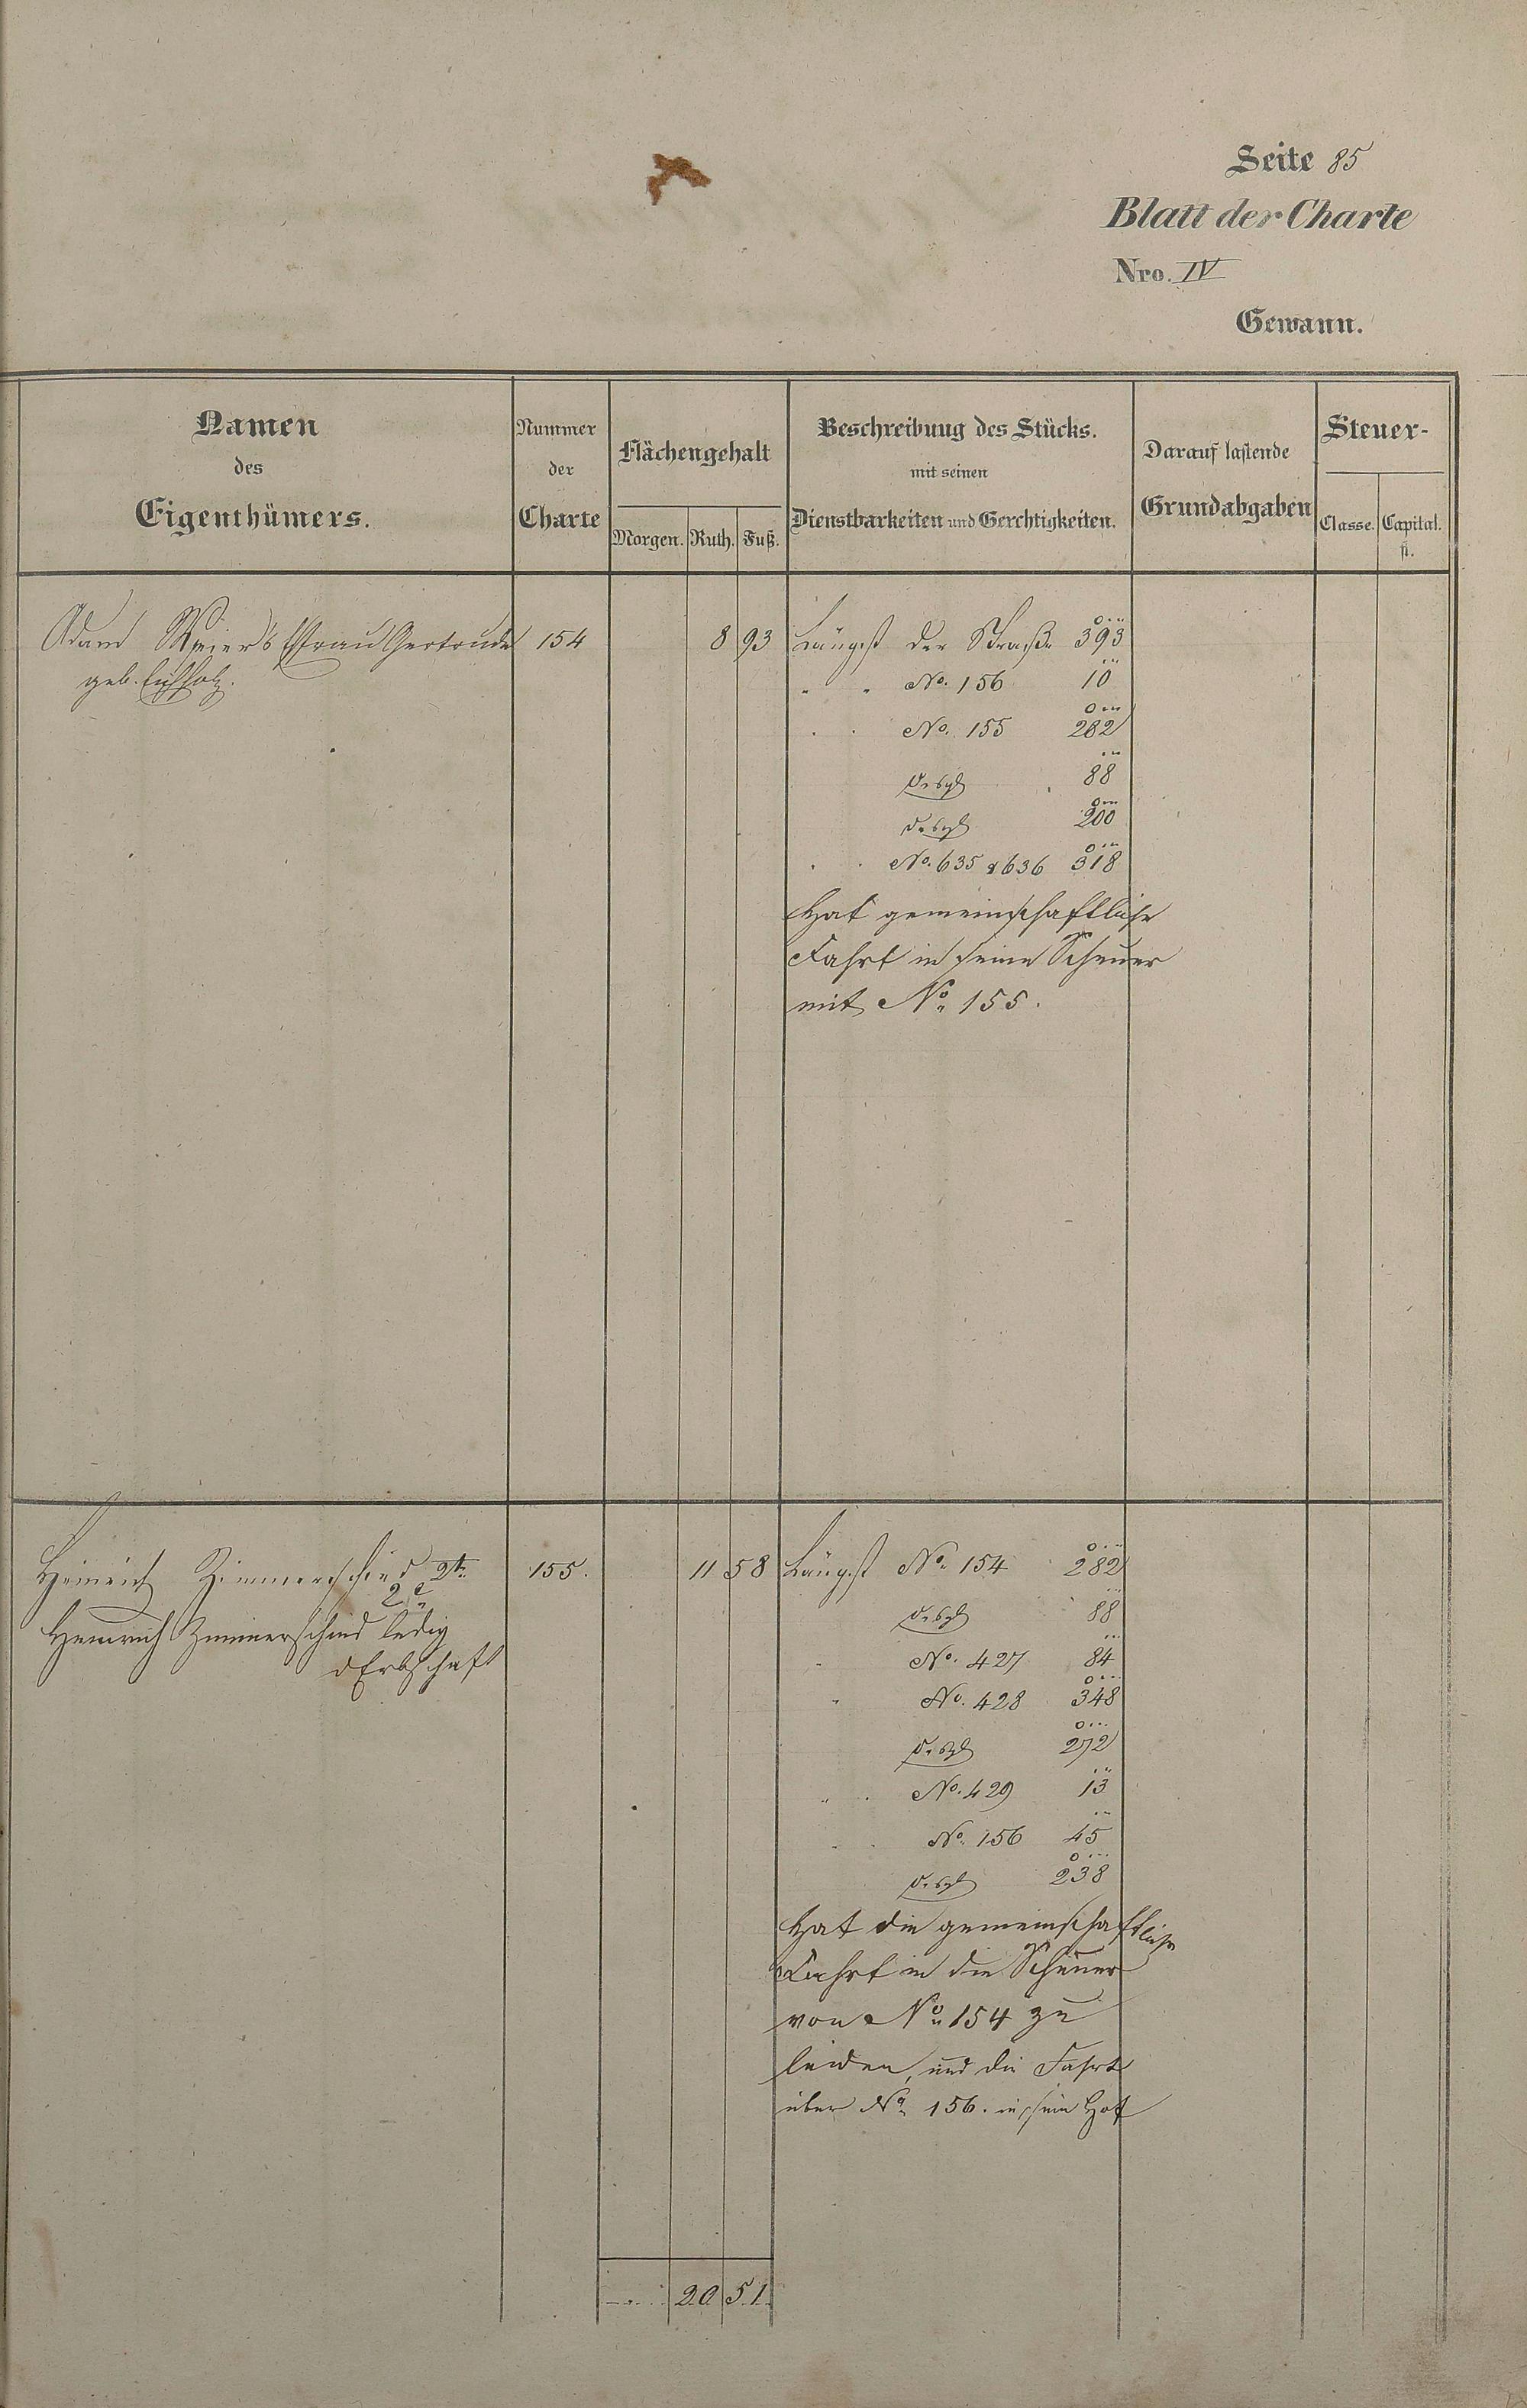 Seite 85
Blatt der Charte
Nro. IV
Gewann.
Namen
des
Eigenthümers.
Nummer
der
Charte
Flächengehalt
Morgen. Ruth. Fuß.
Beschreibung des Stücks.
mit seinen
Dienstbarkeiten und Gerchtigkeiten.
Darauf lastende
Grundabgaben
Steuer-
Classe. Capital.
fl.
Adam Meier's Ehfrau Gertrude 154 8 93 Längst der Straße 393
geb. Eichholz.
" " No. 156 10
" " No. 155 282
desgl 88
desgl 200
" " No. 635 & 636 318
Hat gemeinschaftliche
Fahrt in seine Scheuer
mit No. 155.
Heinrich Zimmerschied 2t. 155. 11 58 Längst No. 154 282
2t
desgl 88
Heinrich Zimmerschied ledig
" No. 427 84
dErbschaft
" No. 428 348
desgl 272
" " No. 429 13
" " No. 156 45
desgl 238
Hat die gemeinschaftliche
Fahrt in die Scheuer
von No. 154 zu
leiden, und die Fahrt
über No. 156. in sein Hof
20 51